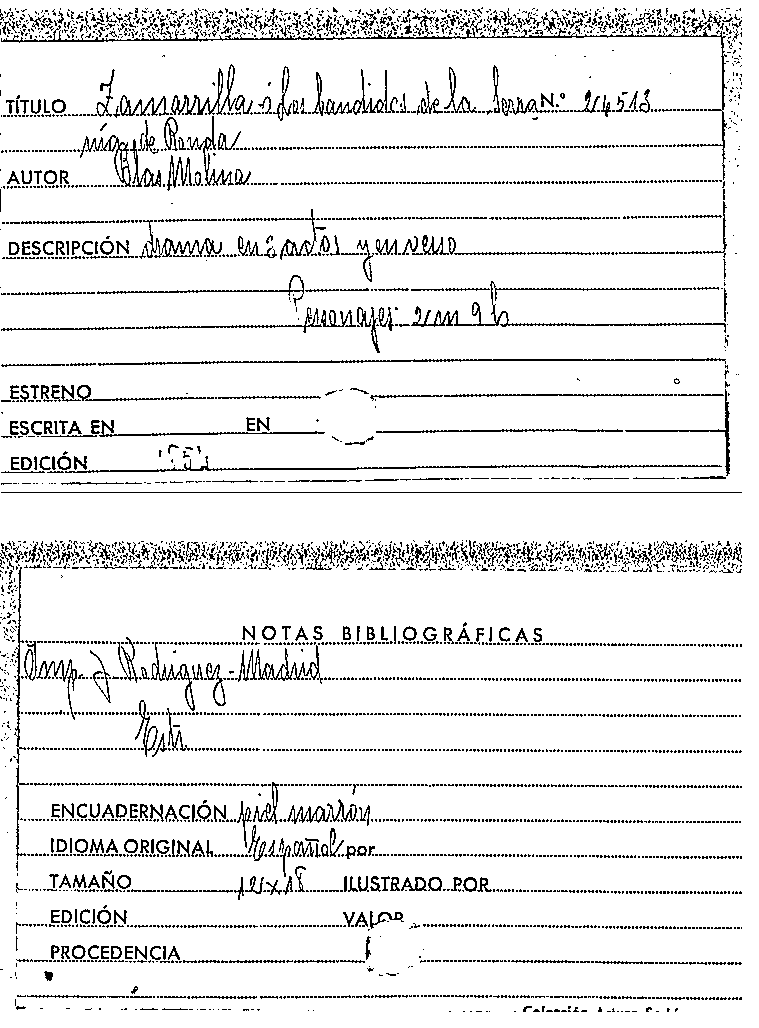 TÍTULO Zamarrilla ó los bandidos de la Serra N.º 24513
nia de Ronda
AUTOR Blas Molina
DESCRIPCIÓN drama en 3 actos y en verso
Personajes 2 m 9 h
ESTRENO
ESCRITA EN EN
EDICIÓN
NOTAS BIBLIOGRÁFICAS
Imp. J Rodriguez - Madrid
ENCUADERNACIÓN piel marrón
IDIOMA ORIGINAL Español por
TAMAÑO 12 x 18 ILUSTRADO POR
EDICIÓN VALOR
PROCEDENCIA
Colección Arturo